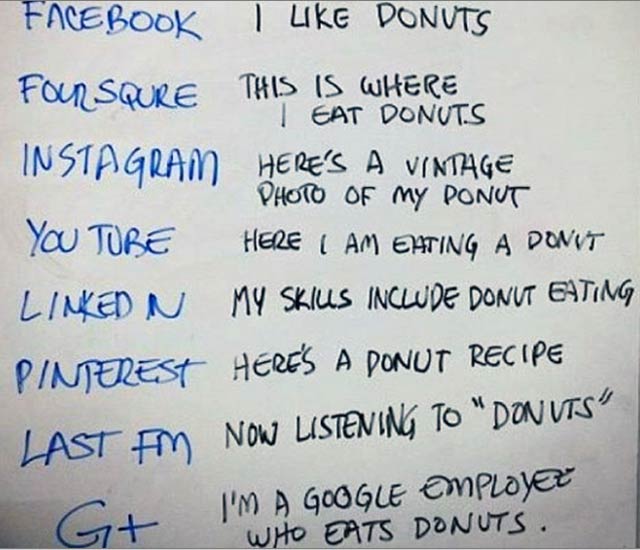 FACEBOOK I LIKE DONUTS
FOURSQURE THIS IS WHERE
I EAT DONUTS
INSTAGRAM HERE'S A VINTAGE
PHOTO OF MY DONUT
YOU TUBE HERE I AM EATING A DONUT
LINKED IN MY SKILLS INCLUDE DONUT EATING
PINTEREST HERE'S A DONUT RECIPE
LAST FM NOW LISTENING TO "DONUTS"
G+ I'M A GOOGLE EMPLOYEE
WHO EATS DONUTS.